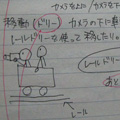 カメラを上に/カメラを下
移動(ドリー) カメラの下に車
レールドリーを使って移動したり。
レールドリー
レール